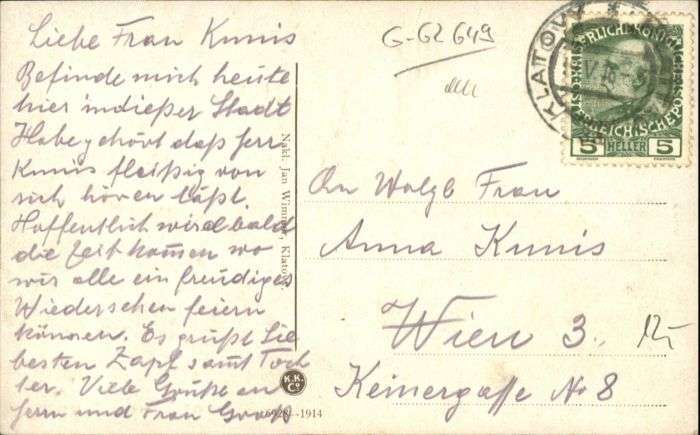 Liebe Frau Kunis
Befinde mich heute
hier in dießer Stadt
Habe gehört daß Herr
Kunis fleißig von
sich hören läßt.
Hoffentlich wird bald
die Zeit kommen wo
wir alle ein freudiges
Wiedersehen feiern
können. Es grüßt Sie
bestens Zapf samt Toch
ter. Viele Grüße an
Herrn und Frau
G-G2 649
KLATOVY
5 HELLER 5
Nakl. Jan Wimmer, Klatovy.
An Wolgb Frau
Anna Kunis
Wien 3.
Keinergasse No 8
K.K.
Co
1914